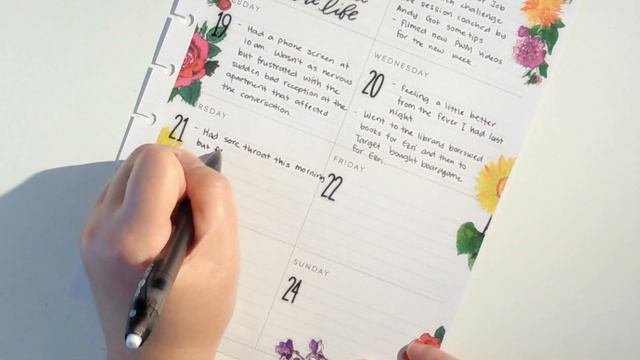 life
Job
challenge
live session coached by
Andy. Got some tips
- Filmed new PWM videos
for the new week.
SDAY
19
- Had a phone screen at
10 am. Wasn't as nervous
but frustrated with the
sudden bad reception at the
apartment that affected
the conversation.
WEDNESDAY
20
- Feeling a little better
from the fever I had last
night
- Went to the library, borrowed
books for Ezri and then to
Target. bought boardgame
for Ezri.
RSDAY
21
- Had sore throat this morning
but
FRIDAY
22
SUNDAY
24